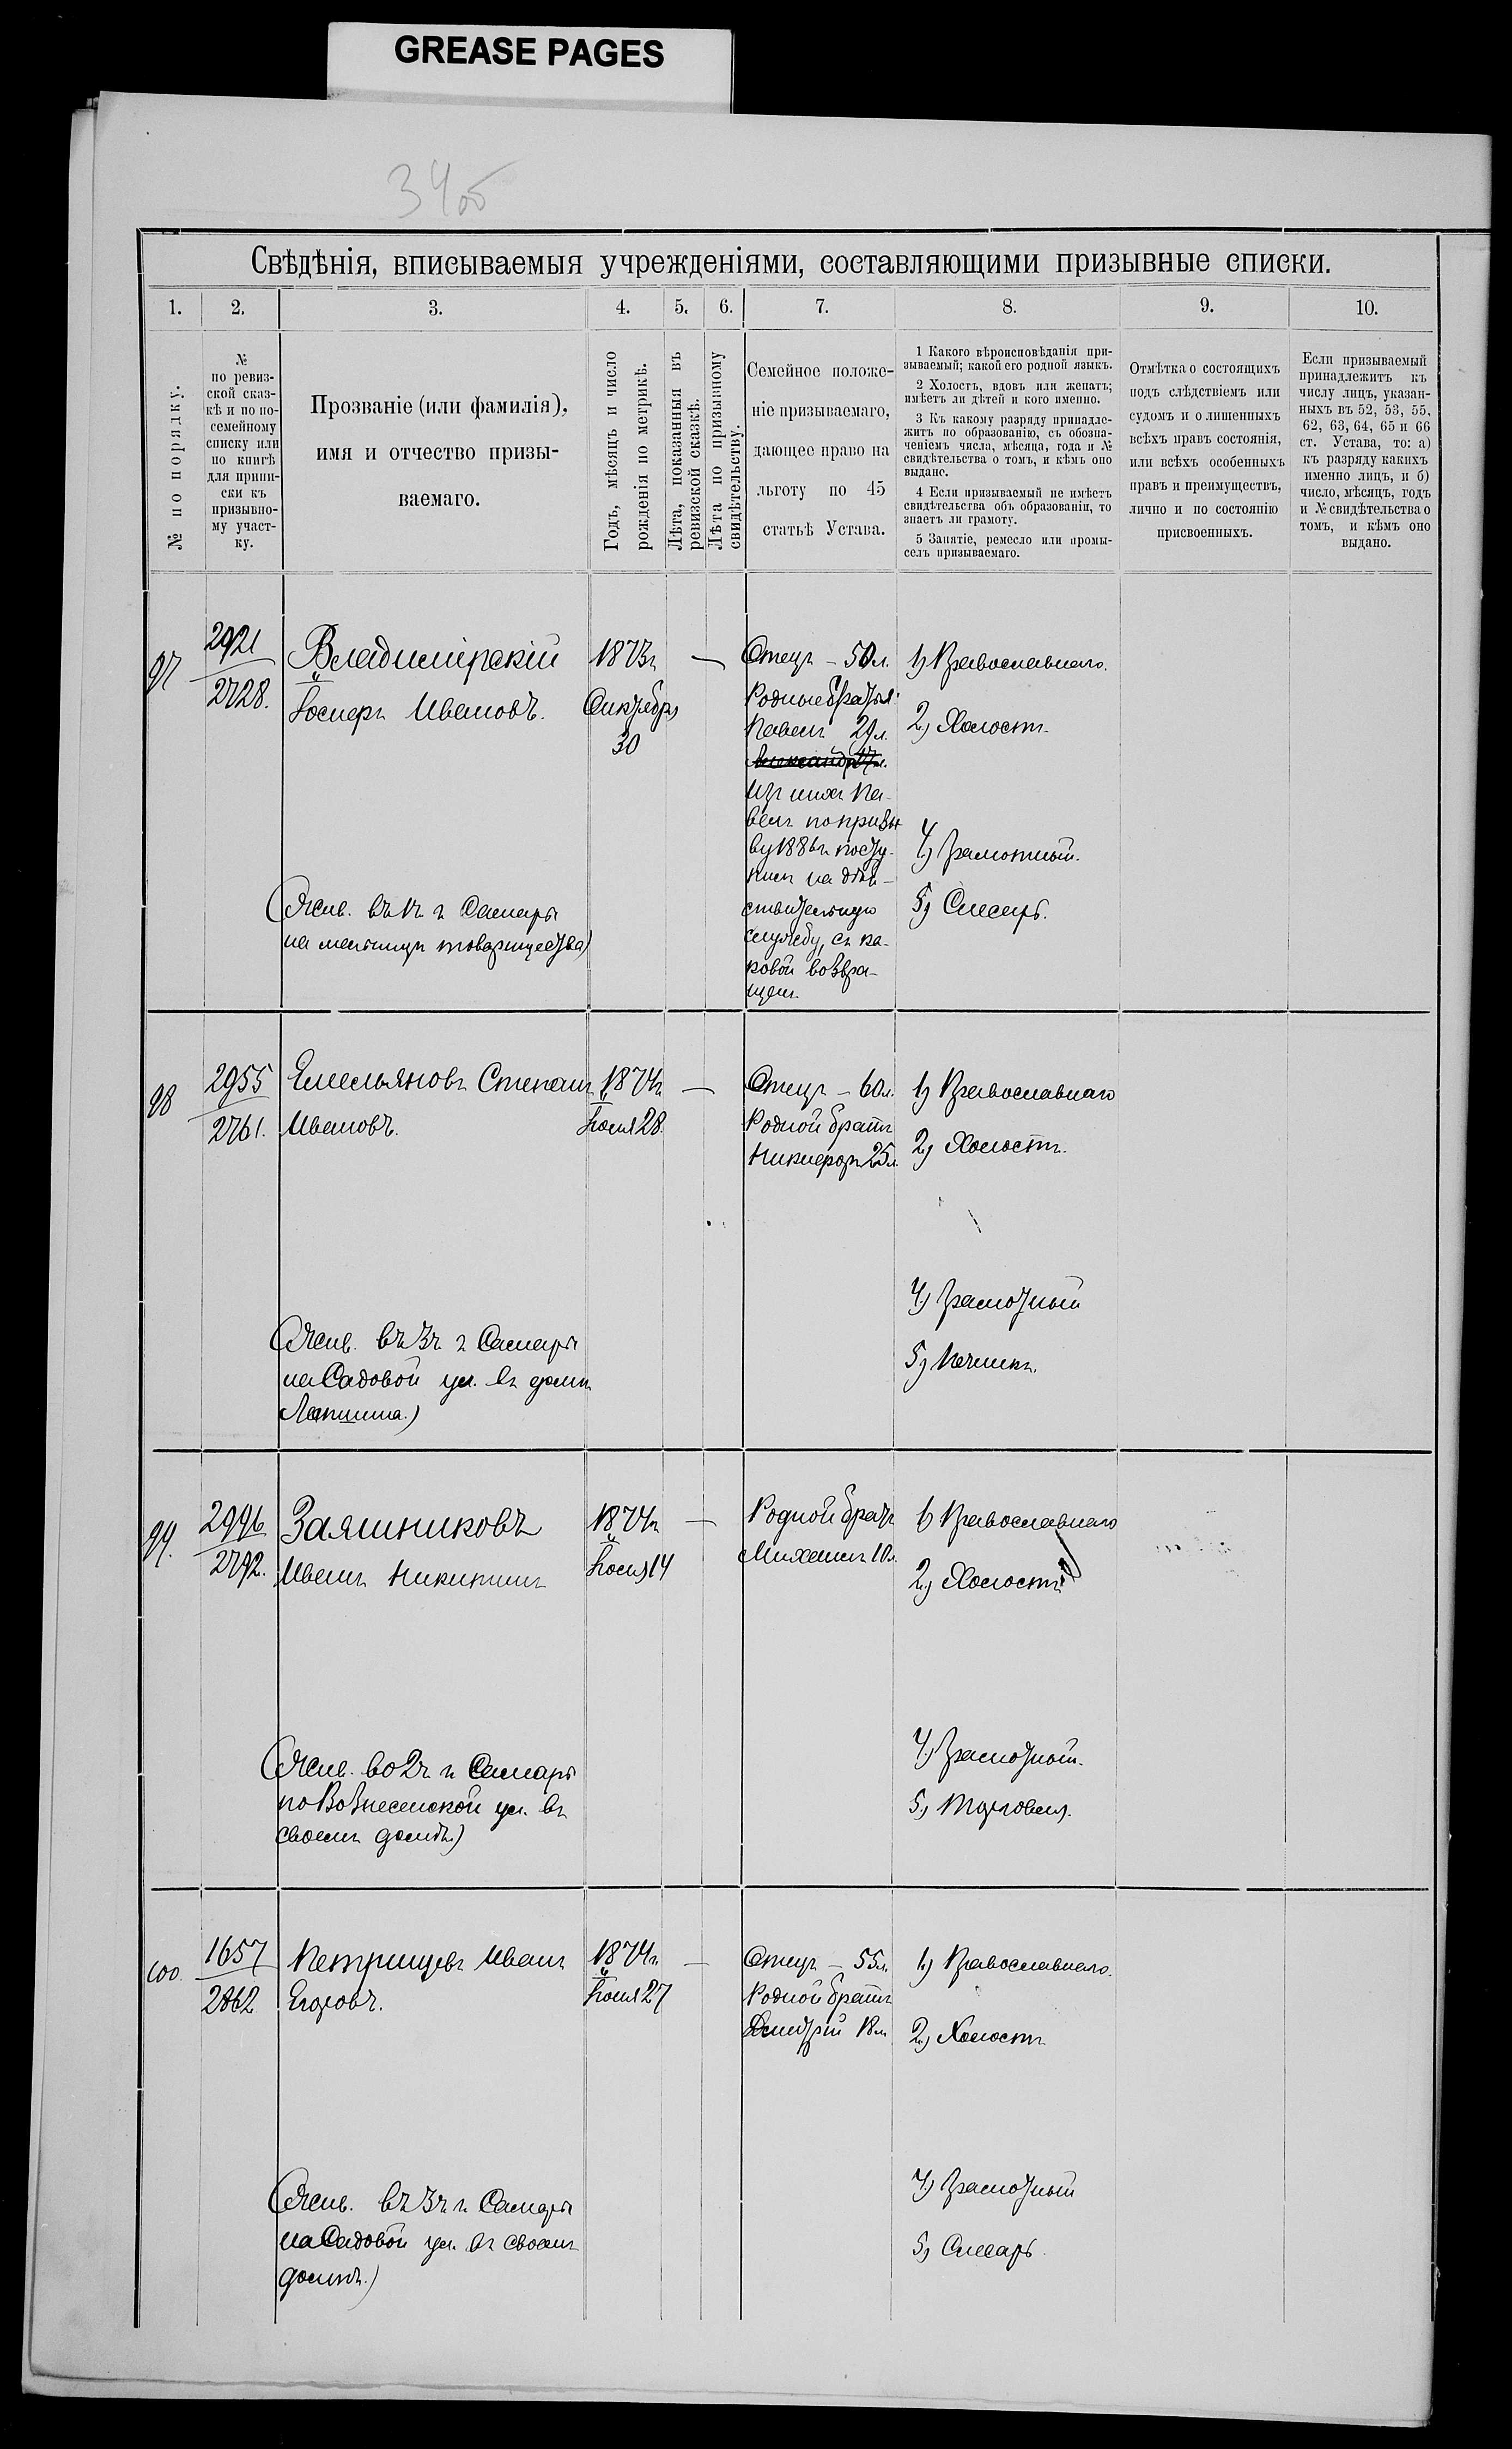 GREASE PAGES
34об
Свѣдѣнія, вписываемыя учрежденіями, составляющими призывные списки.
1. 2. 3. 4. 5. 6. 7. 8. 9. 10.
№ по порядку.
№
по ревиз-
ской сказ-
кѣ и по по-
семейному
списку или
по книгѣ
для припи-
ски къ
призывно-
му участ-
ку.
Прозваніе (или фамилія),
имя и отчество призы-
ваемаго.
Годъ, мѣсяцъ и число
рожденія по метрикѣ.
Лѣта, показанныя въ
ревизской сказкѣ.
Лѣта по призывному
свидѣтельству.
Семейное положе-
ніе призываемаго,
дающее право на
льготу по 45
статьѣ Устава.
1 Какого вѣроисповѣданія при-
зываемый; какой его родной языкъ.
2 Холостъ, вдовъ или женатъ;
имѣетъ ли дѣтей и кого именно.
3 Къ какому разряду принадле-
житъ по образованію, съ обозна-
ченіемъ числа, мѣсяца, года и №
свидѣтельства о томъ, и кѣмъ оно
выдано.
4 Если призываемый не имѣетъ
свидѣтельства объ образованіи, то
знаетъ ли грамоту.
5 Занятіе, ремесло или промы-
селъ призываемаго.
Отмѣтка о состоящихъ
подъ слѣдствіемъ или
судомъ и о лишенныхъ
всѣхъ правъ состоянія,
или всѣхъ особенныхъ
правъ и преимуществъ,
лично и по состоянію
присвоенныхъ.
Если призываемый
принадлежитъ къ
числу лицъ, указан-
ныхъ въ 52, 53, 55,
62, 63, 64, 65 и 66
ст. Устава, то: а)
къ разряду какихъ
именно лицъ, и б)
число, мѣсяцъ, годъ
и № свидѣтельства о
томъ, и кѣмъ оно
выдано.
97
2921
2728.
Владимірскій
Іосифъ Ивановъ.
(Жив. въ 1ч. г. Самары
на мельницѣ товарищества)
1873г.
Октября
30
—
Отецъ – 50л.
Родные братья:
Павелъ 29л.
Александръ 17л.
Изъ нихъ Па-
велъ по призы-
ву 1886г. посту-
пилъ на дѣй-
ствительную
службу, съ ка-
ковой возвра-
щенъ.
1) Православнаго.
2) Холостъ.
4) Грамотный.
5) Слесарь.
98
2955
2761.
Емельяновъ Степанъ
Ивановъ.
(Жив. въ 3ч. г. Самары
на Садовой ул. въ домѣ
Лапшина.)
1874г.
Іюля 28.
—
Отецъ – 60л.
Родной братъ
Никифоръ 25л.
1) Православнаго
2) Холостъ.
4) Грамотный
5) Печникъ.
99.
2996
2792.
Заяшниковъ
Иванъ Никитинъ
(Жив. во 2ч. г. Самары
по Вознесенской ул. въ
своемъ домѣ.)
1874г.
Іюля 14
—
Родной братъ
Михаилъ 10л.
1) Православнаго
2) Холостъ
4) Грамотный.
5) Торговля.
100.
1657
2862
Петрищевъ Иванъ
Егоровъ.
(Жив. въ 3ч. г. Самары
на Садовой ул. въ своемъ
домѣ.)
1874г.
Іюля 27
—
Отецъ – 55л.
Родной братъ
Дмитрій 18л.
1) Православнаго.
2) Холостъ
4) Грамотный
5) Слесарь.